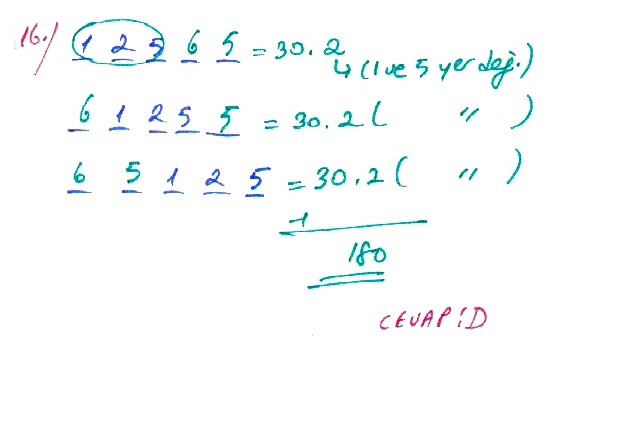 16.) 1 2 5 6 5 = 30.2
↳ (1 ve 5 yer değ.)
6 1 2 5 5 = 30.2 ( " )
6 5 1 2 5 = 30.2 ( " )
+
180
CEVAP: D